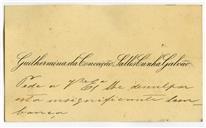 Guilhermina da Conceição Salles Cunha Galvão
Pede a V.ª Ex.ª lhe desculpar
esta insignificante lem-
brança